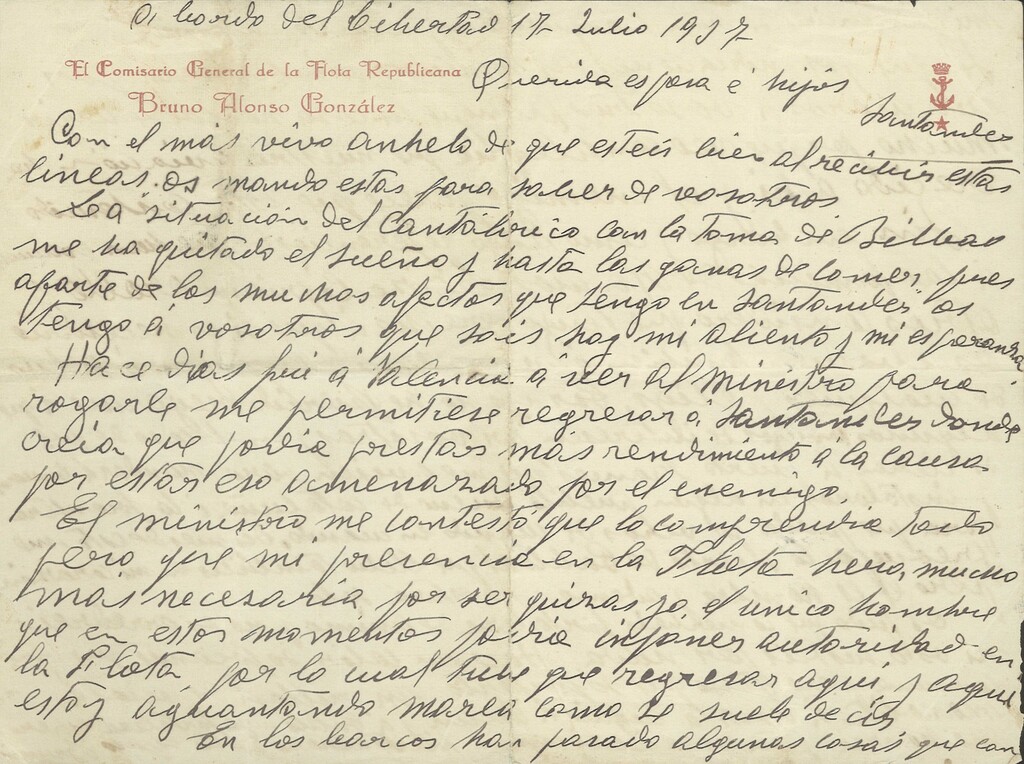 A bordo del Libertad 17 Julio 1937
El Comisario General de la Flota Republicana
Bruno Alonso González
Querida esposa é hijos
Santander
Con el más vivo anhelo de que esteis bien al recibir estas
lineas, os mando estas para saber de vosotros
La situación del Cantábrico con la toma de Bilbao
me ha quitado el sueño y hasta las ganas de comer, pues
aparte de los muchos afectos que tengo en Santander os
tengo á vosotros que sois hoy mi aliento y mi esperanza.
Hace dias fui á Valencia á ver al Ministro para
rogarle me permitiese regresar á Santander donde
creia que podia prestar más rendimiento á la causa
por estar eso amenazado por el enemigo.
El ministro me contestó que lo comprendia todo
pero que mi presencia en la Flota hera mucho
más necesaria por ser quizas yo el unico hombre
que en estos momentos podia inponer autoridad en
la Flota, por lo cual tube que regresar aqui y aqui
estoy aguantando marea como se suele decir
En los barcos han pasado algunas cosas que con